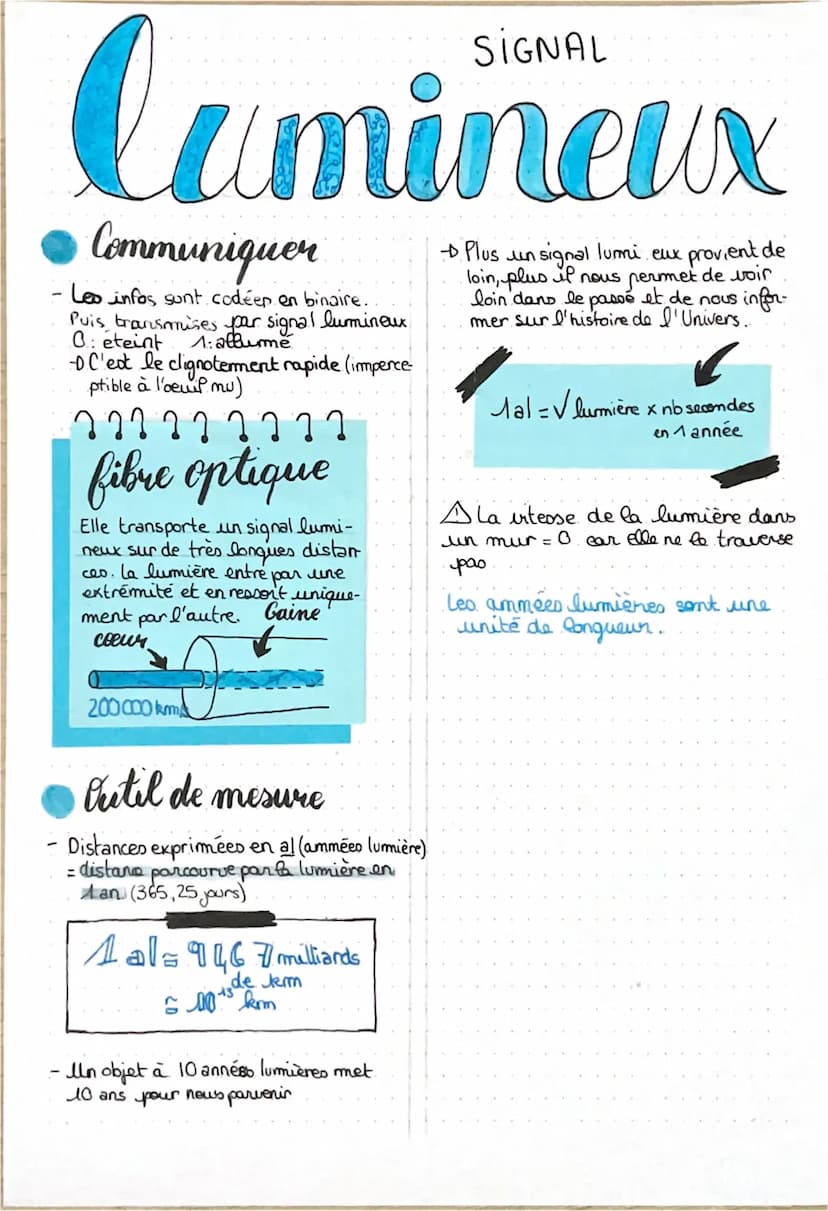 SIGNAL
lumineux
Communiquer
- Les infos sont codées en binaire.
Puis transmises par signal lumineux
0: éteint 1: allumé
→ C'est le clignotement rapide (imperce-
ptible à l'oeuil nu)
fibre optique
Elle transporte un signal lumi-
neux sur de très longues distan-
ces. la lumière entre par une
extrémité et en ressort unique-
ment par l'autre.
Gaine
coeur
200 000 km/s
Outil de mesure
- Distances exprimées en al (années lumière)
= distance parcourue par la lumière en
1 an (365,25 jours)
1 al ≈ 9467 milliards
de km
≈ 10¹³ km
- Un objet à 10 années lumières met
10 ans pour nous parvenir
→ Plus un signal lumi eux provient de
loin, plus il nous permet de voir
loin dans le passé et de nous infor-
mer sur l'histoire de l'Univers.
1al = √ lumière x nb secondes
en 1 année
⚠ La vitesse de la lumière dans
un mur = 0 car elle ne le traverse
pas
Les années lumières sont une
unité de longueur.